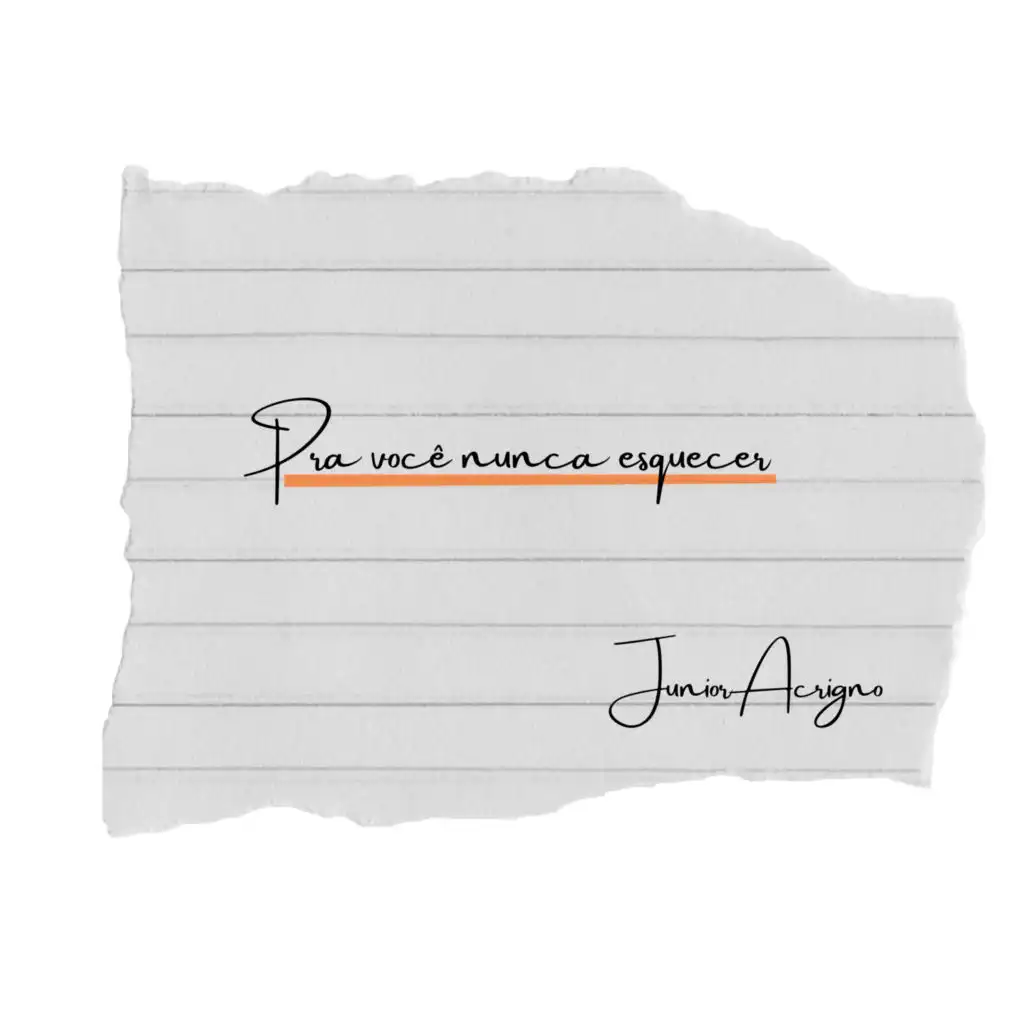 Pra você nunca esquecer
Junior Acrigno